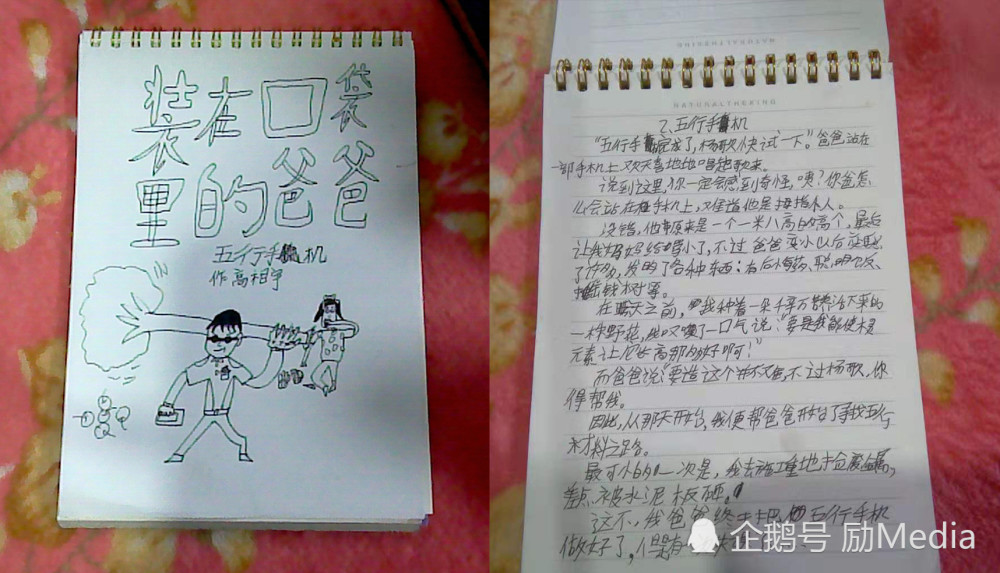 装在口袋
里的爸爸
五行手机
作高相宇
NATURALTHEKING
NATURALTHEKING
2、五行手机
“五行手机完成了,杨歌快试一下”。爸爸站在
一部手机上欢天喜地地唱起歌来。
说到这里,你一定会感到奇怪,咦?你爸怎
么会站在手机上,难道他是拇指人。
没错,他原来是一个一米八高的高个,最后
让我妈妈给喝小了,不过爸爸变小以后
了许多,发明了各种东西:后悔药、聪明饭、
摇钱树等。
在 天之前,我种着一朵千辛万 下来的
一株野花,叹了一口气说:“要是我能使木
元素让它长高那多好啊!”
而爸爸说“要造这个并不难,不过杨歌,你
得帮我。
因此,从那天开始,我便帮爸爸开始了寻找五行
材料之路。
最可怕的一次是,我去施工重地捡废金属,
差点被水泥板砸。
这不,我爸爸终于把五行手机
做好了,但是有
企鹅号 励Media